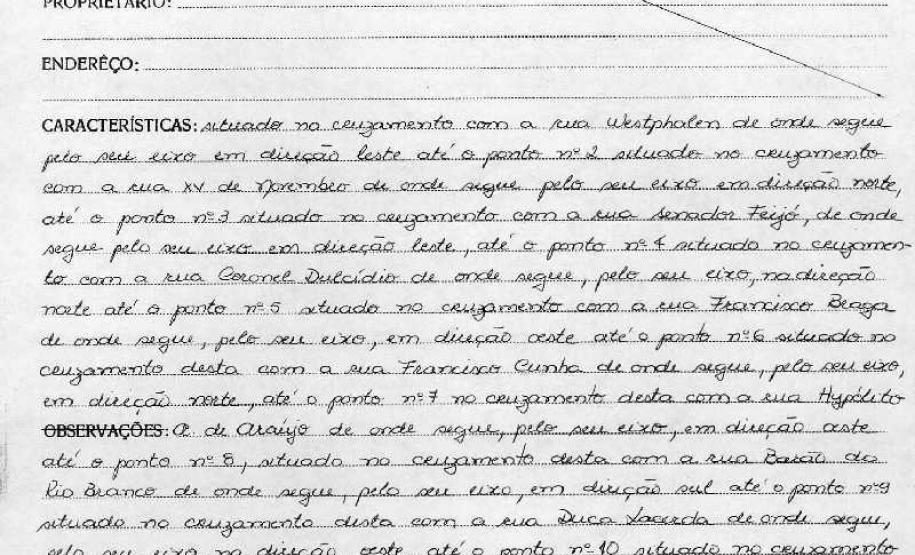 PROPRIETÁRIO:
ENDERÊÇO:
CARACTERÍSTICAS: situado no cruzamento com a rua Westphalen de onde segue
pelo seu eixo em direção leste até o ponto nº 2 situado no cruzamento
com a rua XV de Novembro de onde segue pelo seu eixo em direção norte,
até o ponto nº 3 situado no cruzamento com a rua Senador Feijó, de onde
segue pelo seu eixo em direção leste, até o ponto nº 4 situado no cruzamen-
to com a rua Coronel Dulcídio de onde segue, pelo seu eixo, na direção
norte até o ponto nº 5 situado no cruzamento com a rua Francisco Braga
de onde segue, pelo seu eixo, em direção oeste até o ponto nº 6 situado no
cruzamento desta com a rua Francisco Cunha de onde segue, pelo seu eixo,
em direção norte, até o ponto nº 7 no cruzamento desta com a rua Hypólito
OBSERVAÇÕES: A. de Araújo de onde segue, pelo seu eixo, em direção oeste
até o ponto nº 8, situado no cruzamento desta com a rua Barão do
Rio Branco de onde segue, pelo seu eixo, em direção sul até o ponto nº 9
situado no cruzamento desta com a rua Duca Lacerda de onde segue,
pelo seu eixo na direção oeste até o ponto nº 10 situado no cruzamento